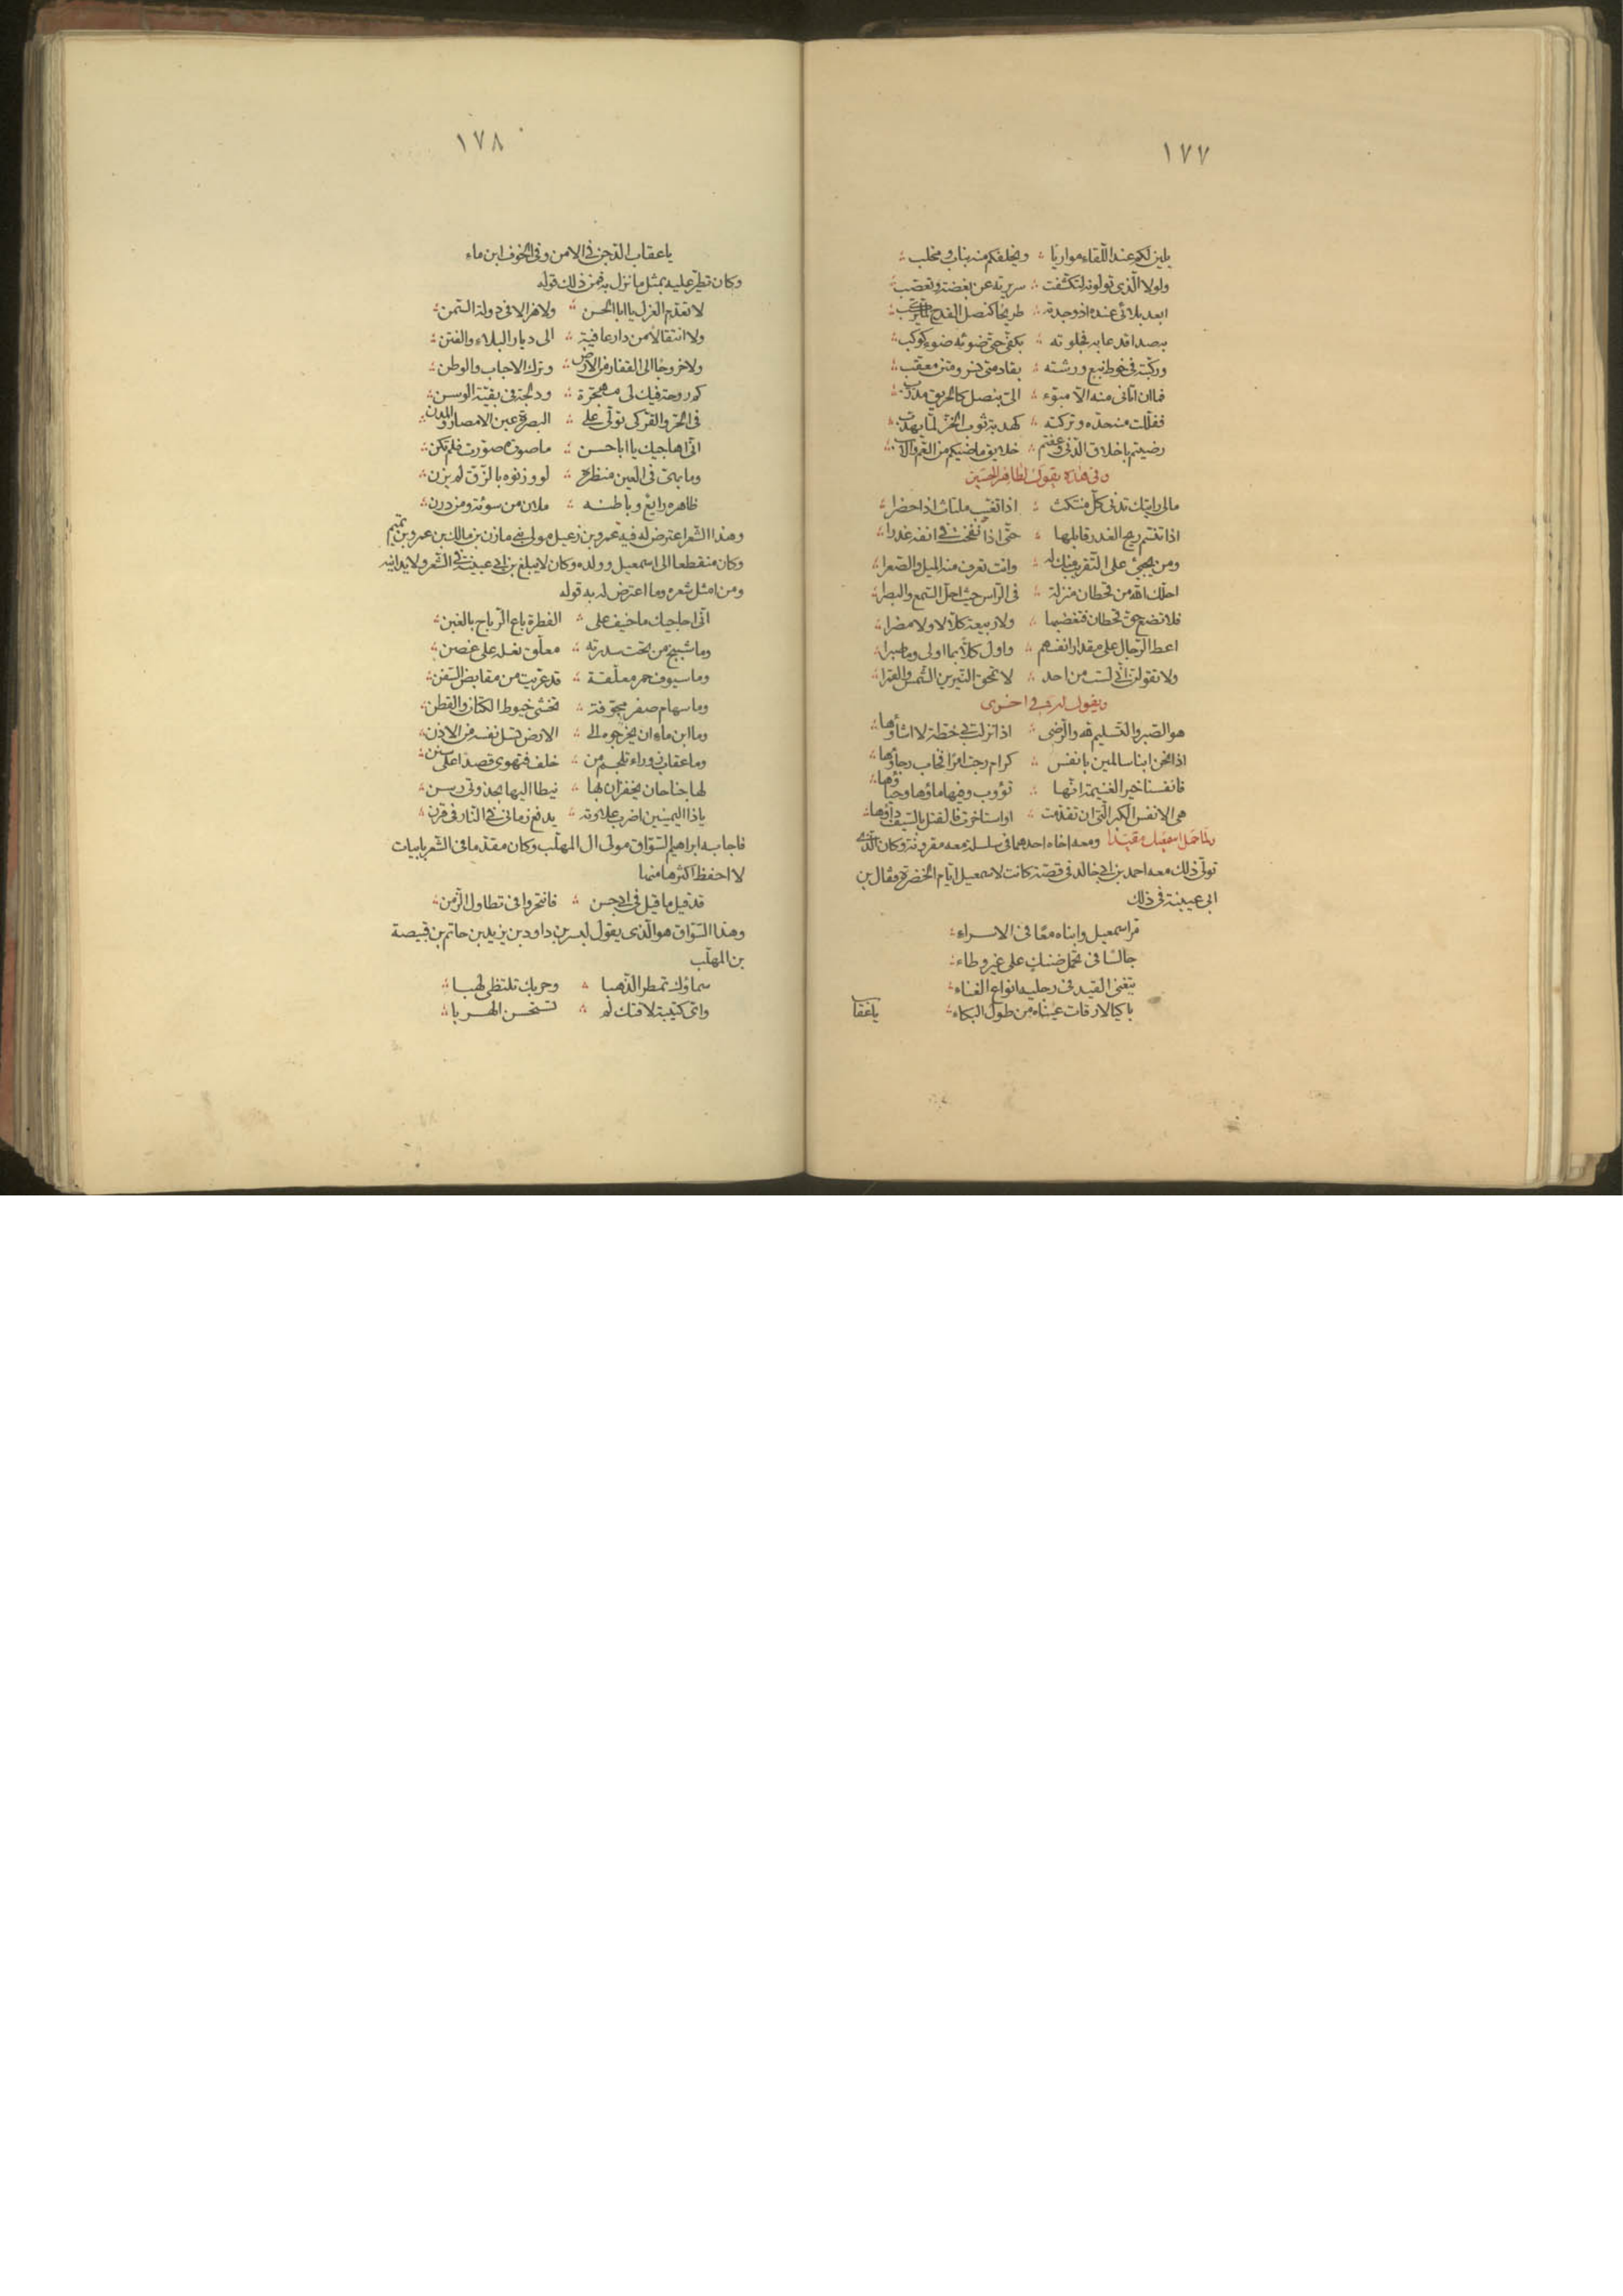 ١٧٧
يلين لكم عند اللقاء مواربا ؞ ويخلفكم منه بناب ومخلب ؞
ولولا الذى تولونه لتكشفت ؞ سريرته عن بغضة وتعصب ؞
ابعد بلائى عنده اذ وجدته ؞ طريحا كنصل القدح
به صدا قد عابه فجلوته ؞ بكفى حتى ضوئه ضوء كوكب ؞
وركبته فى خوط نبع ورشته ؞ بقادمتى نسر ومتن معقب ؞
فما ان اتانى منه الا مبوّء ؞ الىّ بنصل كالحريق مذرّب ؞
ففللت منه حده وتركته ؞ كهدبة ثوب الخز لما يهدب ؞
رضيتم باخلاق الدنى وعفتم ؞ خلايق ماضيكم من العم والاب ؞
وفى هذه يقول لطاهر بن الحسين
مالى رايتك تدنى كل منتكث ؞ اذا تغيب ملتاث اذا حضرا ؞
اذا تنسم ريح الغدر قابلها ؞ حتى اذا نفخت فى انفه غدرا ؞
ومن يجيئ على التقريب منك له ؞ وانت تعرف منه الميل والصعرا ؞
احلك الله من قحطان منزلة ؞ فى الراس حيث احل السمع والبصرا ؞
فلا تضع حق قحطان فتغضبها ؞ ولا ربيعة كلا لا ولا مضرا ؞
اعط الرجال على مقدار انفسهم ؞ واول كلا بما اولى وما صبرا ؞
ولا تقولن انى لست من احد ؞ لا تمحق النيرين الشمس والقمرا ؞
ويقول له فى اخرى
هو الصبر والتسليم لله والرضى ؞ اذا نزلت بى خطة لا اشاؤها ؞
اذا نحن ابنا سالمين بانفس ؞ كرام رجت امرا فخاب رجاؤها ؞
فانفسنا خير الغنيمة انها ؞ تؤوب وفيها ماؤها وحياؤها ؞
هى الانفس الكبر التى ان تقدمت ؞ او استاخرت فالقتل بالسيف داؤها ؞
ولما حمل اسمعيل مقيدا ومعه اخاه احدهما فى سلسلة معه مقرونة وكان الذى
تولى ذلك معه احمد بن ابى خالد فى قصة كانت لاسمعيل ايام الخضرة فقال بن
ابى عيينة فى ذلك
مر اسمعيل وابناه معا فى الاسراء ؞
جالسا فى محمل ضنك على غير وطاء ؞
يتغنى القيد فى رجليه انواع الغناء ؞
باكيا لا رقات عيناه من طول البكاء ؞
ياعقا
١٧٨
ياعقاب الدجن فى الامن وفى الخوف ابن ماء
وكان تطير عليه بمثل ما نزل به فمن ذلك قوله
لا تعدم العزل يا ابا الحسن ؞ ولا هزالا فى دولة السمن ؞
ولا انتقالا من دار عافية ؞ الى ديار البلاء والفتن ؞
ولا خروجا الى القفار من الارض ؞ وترك الاحباب والوطن ؞
كم روحة فيك لى مهجرة ؞ ودلجة فى بقية الوسن ؞
فى الحر والقر كى تولى على ؞ البصرة عين الامصار والمدن ؞
انى اهاجيك يا ابا حسن ؞ ما صورة صورت فلم تكن ؞
وما بهى فى العين منظره ؞ لو وزنوه بالزق لم يزن ؞
ظاهره رايع وباطنه ؞ ملان من سوئة ومن درن ؞
وهذا الشعر اعترض له فيه عمرو بن زعبل مولى بنى مازن بن مالك بن عمرو بن تميم
وكان منقطعا الى اسمعيل وولده وكان لا يبلغ بن ابى عيينة فى الشعر ولا يدانيه
ومن امثل شعره وما اعترض له به قوله
انى احاجيك ما خيف على ؞ الفطرة باع الرباح بالغبن ؞
وما شبيخ من تحت سدرته ؞ معلق نعله على غصن ؞
وما سيوف حمر معلقة ؞ قد عريت من مقابض السفن ؞
وما سهام صفر مجوفة ؞ تخشى خيوط الكتان والقطن ؞
وما ابن ماء ان يخرجوه الى ؞ الارض تسل نفسه من الاذن ؞
وما عقاب زوراء تلجم من ؞ خلف فتهوى قصدا على سنن ؞
لها جناحان يحفزان بها ؞ نيطا اليها بجذوتى رسن ؞
ياذا اليمينين اضرب علاوته ؞ يدفع زمانى فى النار فى قرن ؞
فاجابه ابراهيم السواق مولى ال المهلب وكان مقدما فى الشعر بابيات
لا احفظ اكثرها منها
قد قيل ما قيل فى ابى حسن ؞ فانتحروا فى تطاول الزمن ؞
وهذا السواق هو الذى يقول لبسر بن داود بن يزيد بن حاتم بن قبيصة
بن المهلب
سماؤك تمطر الذهبا ؞ وحربك تلتظى لهبا ؞
واى كتيبة لاقتك لم ؞ تستحسن الهربا ؞